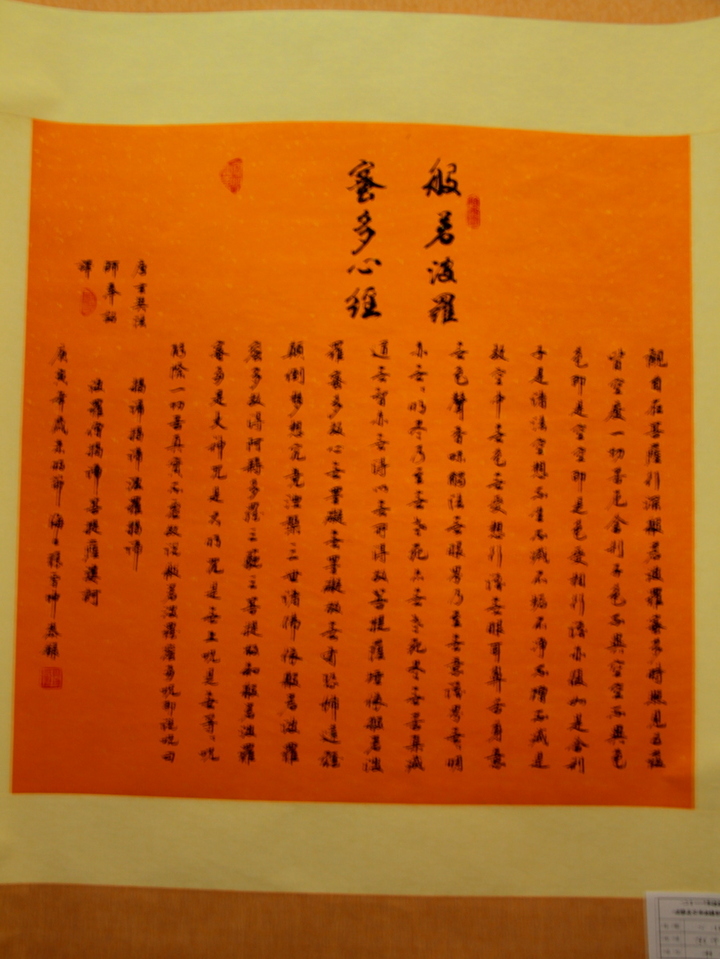 般若波羅
蜜多心經
觀自在菩薩行深般若波羅蜜多時照見五蘊
皆空度一切苦厄舍利子色不異空空不異色
色即是空空即是色受想行識亦復如是舍利
子是諸法空想不生不滅不垢不淨不增不減是
故空中無色無受想行識無眼耳鼻舌身意
無色聲香味觸法無眼界乃至無意識界無明
亦無〻明盡乃至無老死亦無老死盡無苦集滅
道無智亦無得以無所得故菩提薩埵依般若波
羅蜜多故心無罣礙無罣礙故無有恐怖遠離
顛倒夢想究竟涅槃三世諸佛依般若波羅
蜜多故得阿耨多羅三藐三菩提故知般若波羅
蜜多是大神咒是大明咒是無上咒是無等〻咒
能除一切苦真實不虛故說般若波羅蜜多咒即說咒曰
揭諦揭諦波羅揭諦
波羅僧揭諦菩提薩婆訶
唐玄奘法
師奉詔
譯
庚寅年歲